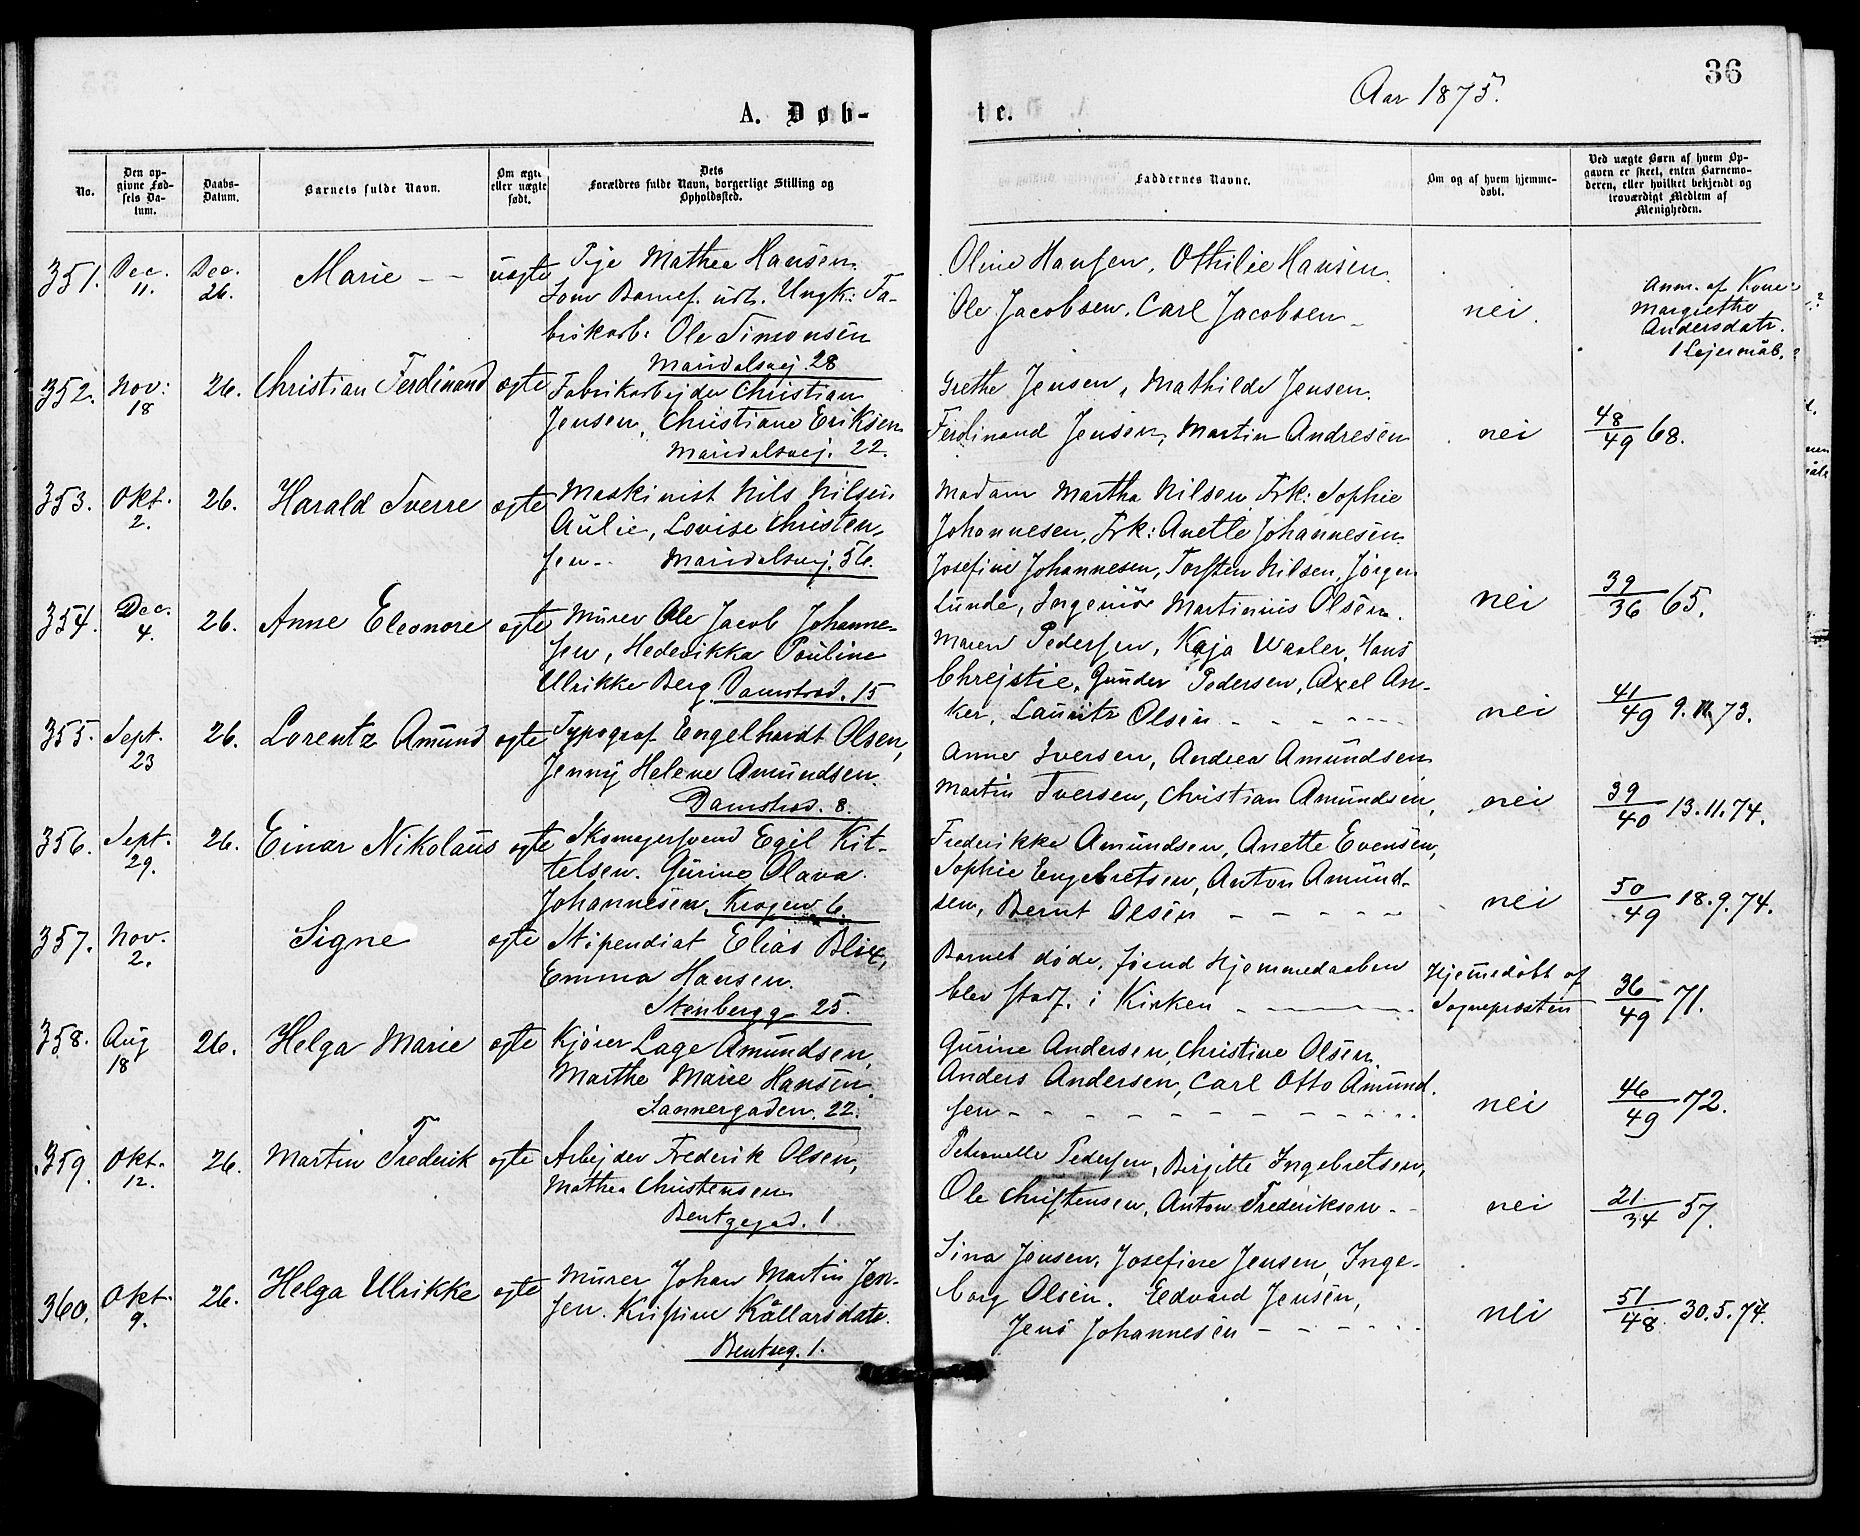 36
Aar 1875.
A. Døb-
te.
No.
Den op-
givne Fød-
sels Da-
tum.
Daabs-
Datum.
Barnets fulde Navn.
Om ægte
eller uægte
født.
Dets
Forældres fulde Navn, borgerlige Stilling og
Opholdssted.
Faddernes Navne.
Om og af hvem hjemme-
døbt.
Ved uægte Børn af hvem Op-
gaven er skeet, enten Barnemo-
deren, eller hvilket bekjendt og
troværdigt Medlem af
Menigheden.
351. Dec. 11. Dec. 26. Marie – – uægte
Pige Mathea Hansen.
Som Barnef. udl. Ungk: Fa-
brikarb: Ole Simonsen
Maridalsvej 28
Oline Hansen, Othilie Hansen
Ole Jacobsen, Carl Jacobsen –
nei.
Anm. af Kone
Margrethe
Andersdatr.
1 Lejermaal.
352. Nov: 18 26. Christian Ferdinand ægte
Fabrikarbejder Christian
Jensen, Christiane Eriksen
Maridalsvej. 22.
Grethe Jensen, Mathilde Jensen.
Ferdinand Jensen, Martin Andresen
nei
48/49 68.
353. Okt. 2. 26. Harald Sverre ægte
Maskinist Nils Nilsen
Aulie, Lovise Christen-
sen – Maridalsvej. 56.
Madam Martha Nilsen, Frk: Sophie
Johannesen, Frk: Anette Johannesen
Josefine Johannesen, Torsten Nilsen, Jörgen
Lunde, Ingeniör Martinius Olsen.
nei
39/36 65.
354. Dec. 4. 26. Anne Eleonore ægte
Murer Ole Jacob Johanne-
sen, Hederikka Pauline
Ulrikke Berg. Damstrad. 15
Maren Pedersen, Kaja Waaler, Hans
Chrejstie, Gunder Pedersen, Axel An-
ker, Lauritz Olsen – – – – –
nei
41/49 9.11.73.
355. Sept. 23 26. Lorentz Amund ægte
Typograf Engelhardt Olsen,
Jenny Helene Amundsen.
Damstrad. 8.
Anne Iversen, Andrea Amundsen
Martin Iversen, Christian Amundsen,
nei
39/40 13.11.74.
356. Sept. 29. 26. Einar Nikolaus ægte
Skomagersvend Egil Kit-
telsen. Gurine Olava
Johannesen, Krogen 6.
Frederikke Amundsen, Anette Evensen,
Sophie Engebretsen, Anton Amund-
sen, Bernt Olsen – – – – –
nei
50/49 18.9.74.
357. Nov. 2. Signe ægte
Stipendiat Elias Blix,
Emma Hansen.
Stenbergg 25.
Barnet døde, førend Hjemmedaaben
blev stadf. i Kirken – –
Hjemmedøbt af
Sogneprosten
36/49 71.
358. Aug 18 26. Helga Marie ægte
Kjører Lage Amundsen,
Marthe Marie Hansen.
Sannergaden. 22.
Gurine Andersen, Christine Olsen
Anders Andersen, Carl Otto Amund-
sen – – – – – – – –
nei
46/49 72.
359. Okt. 12. 26. Martin Frederik ægte
Arbejder Frederik Olsen,
Mathea Christensen
Bentzegad. 1.
Petronelle Pedersen, Birgitte Ingebretsen,
Ole Christensen, Anton Frederiksen –
nei
21/34 57.
360. Okt. 9. 26. Helga Ulrikke ægte
Murer Johan Martin Jen-
sen. Kristine Källarsdatr.
Bentseg. 1.
Sina Jensen, Josefine Jensen, Inge-
borg Olsen. Edvard Jensen,
Jens Johannesen – – – – –
nei
51/48 30.5.74.